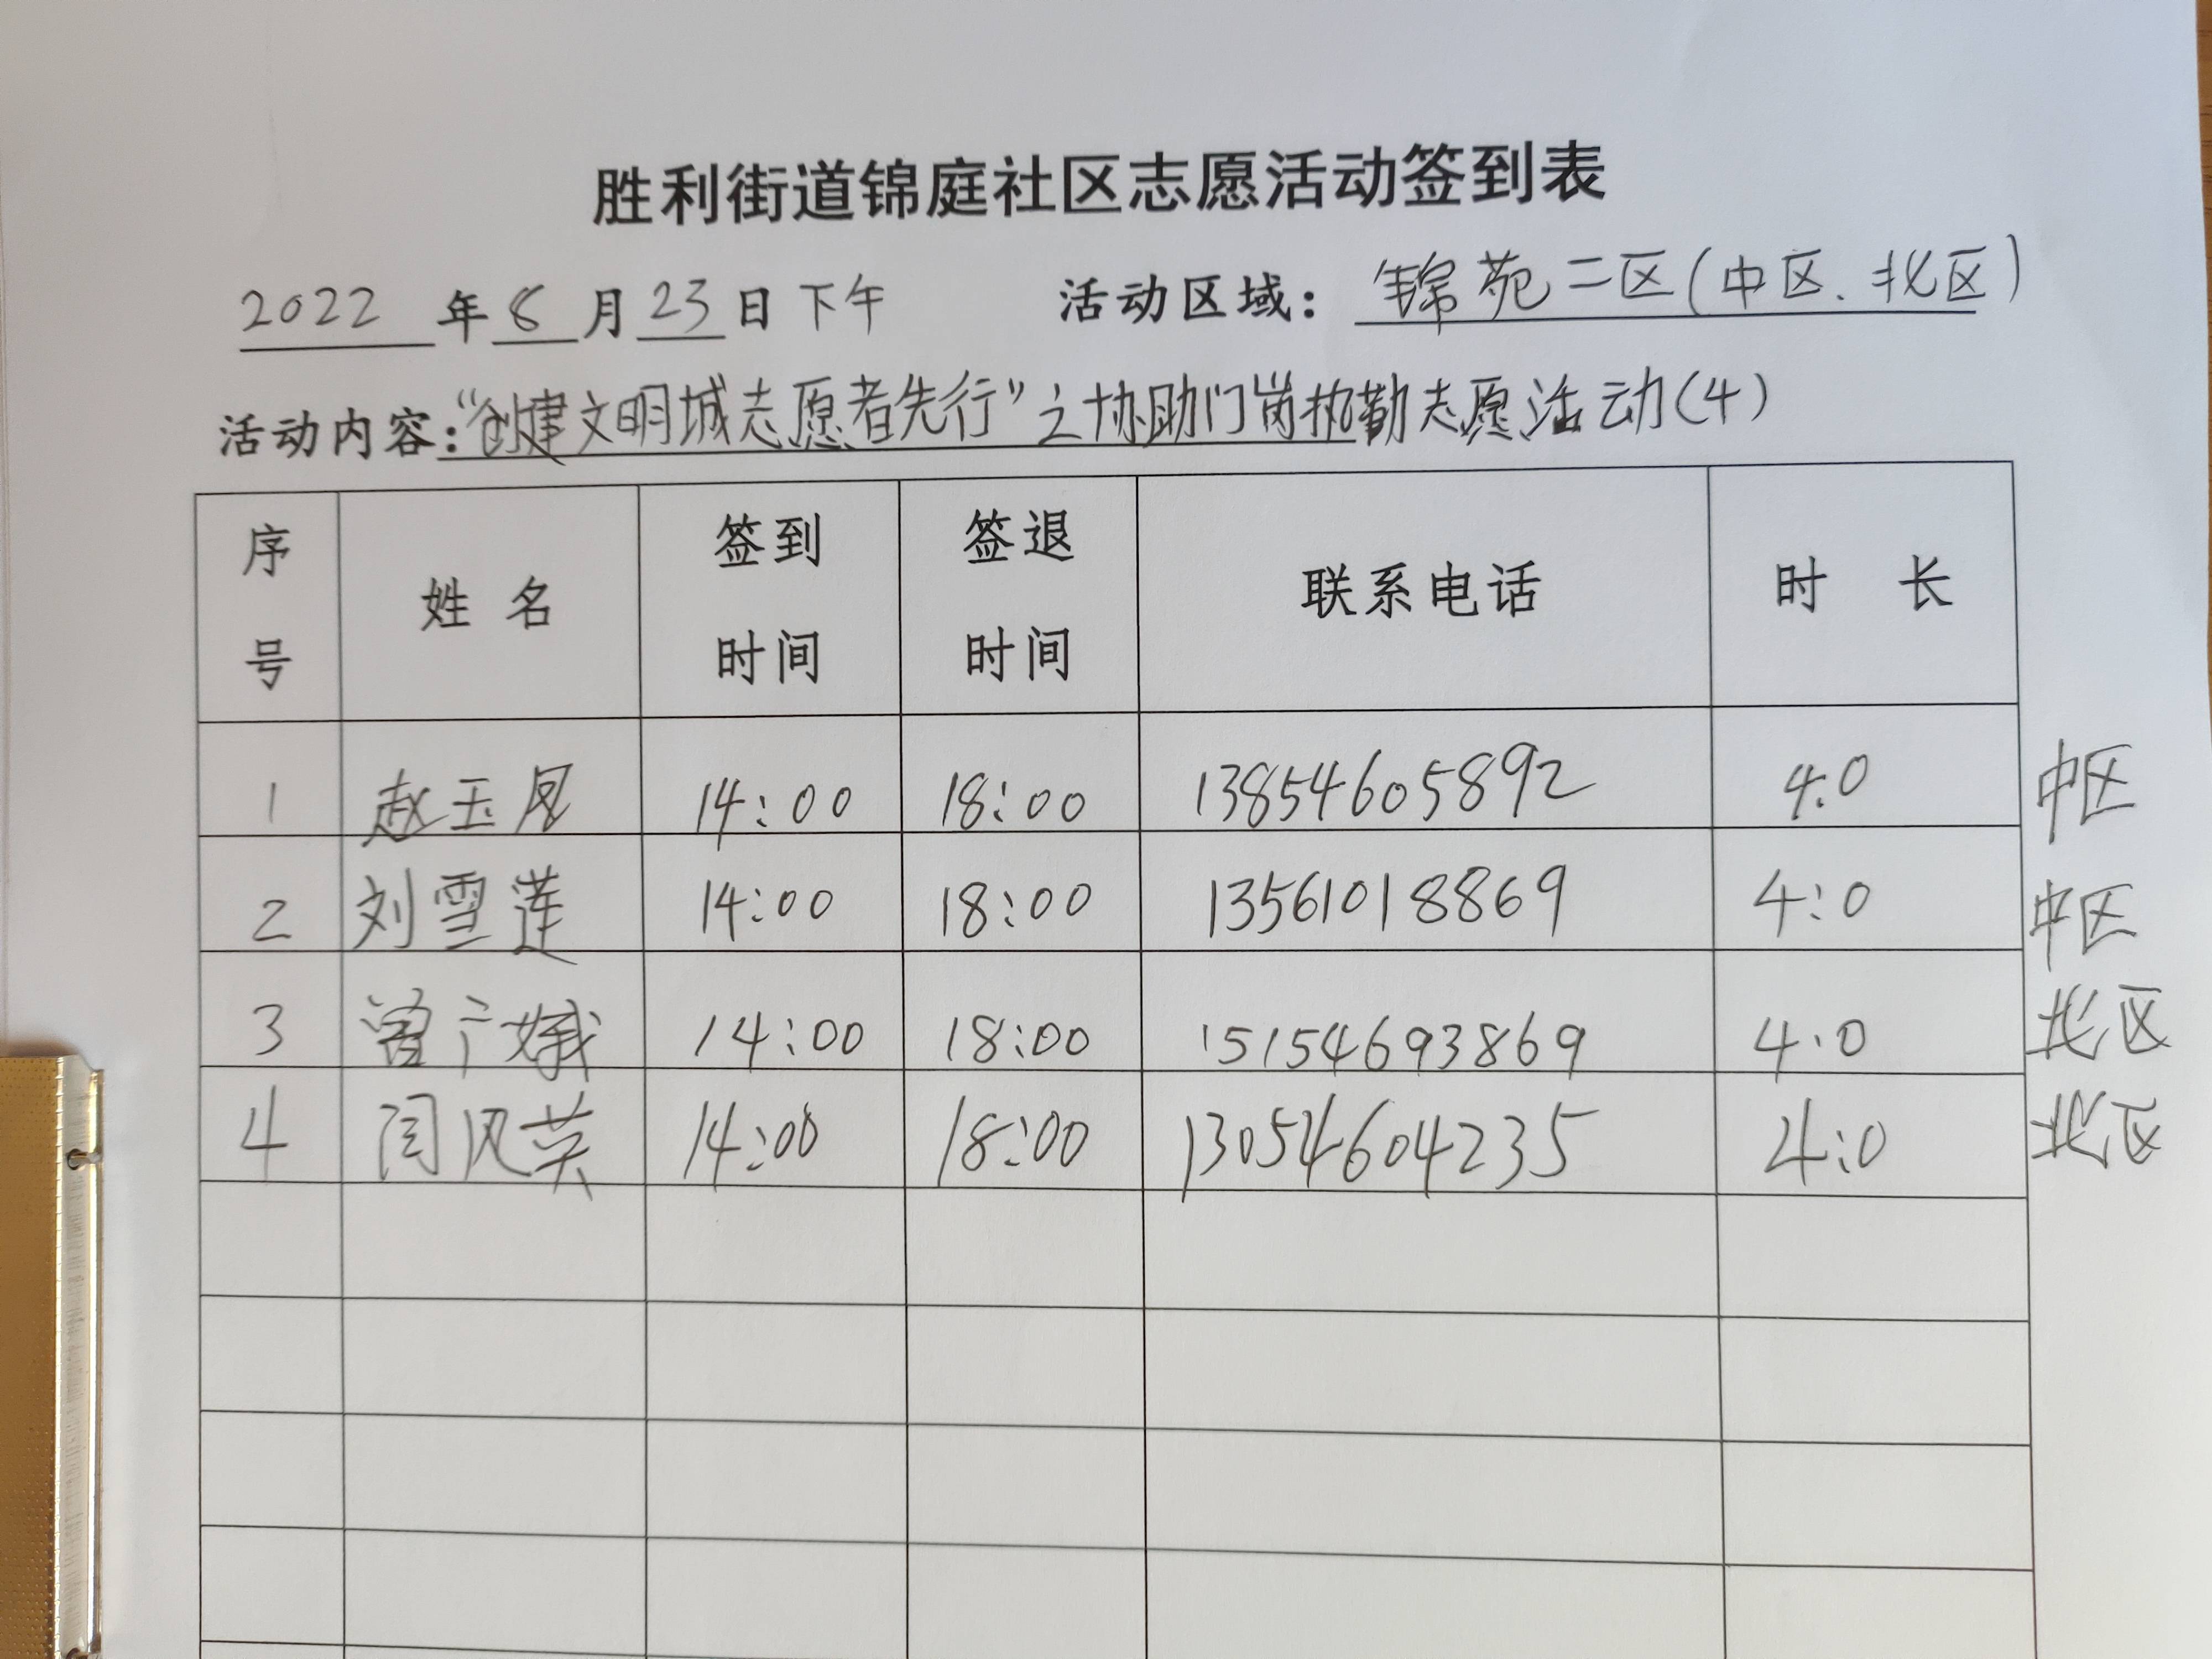 胜利街道锦庭社区志愿活动签到表
2022年8月23日下午 活动区域：锦苑二区(中区、北区)
活动内容："创建文明城志愿者先行"之协助门岗执勤志愿活动(4)
序号 姓名 签到时间 签退时间 联系电话 时长
1 赵玉凤 14:00 18:00 13854605892 4.0 中区
2 刘雪莲 14:00 18:00 13561018869 4:0 中区
3 曾广娥 14:00 18:00 15154693869 4.0 北区
4 闫风英 14:00 18:00 13054604235 4:0 北区